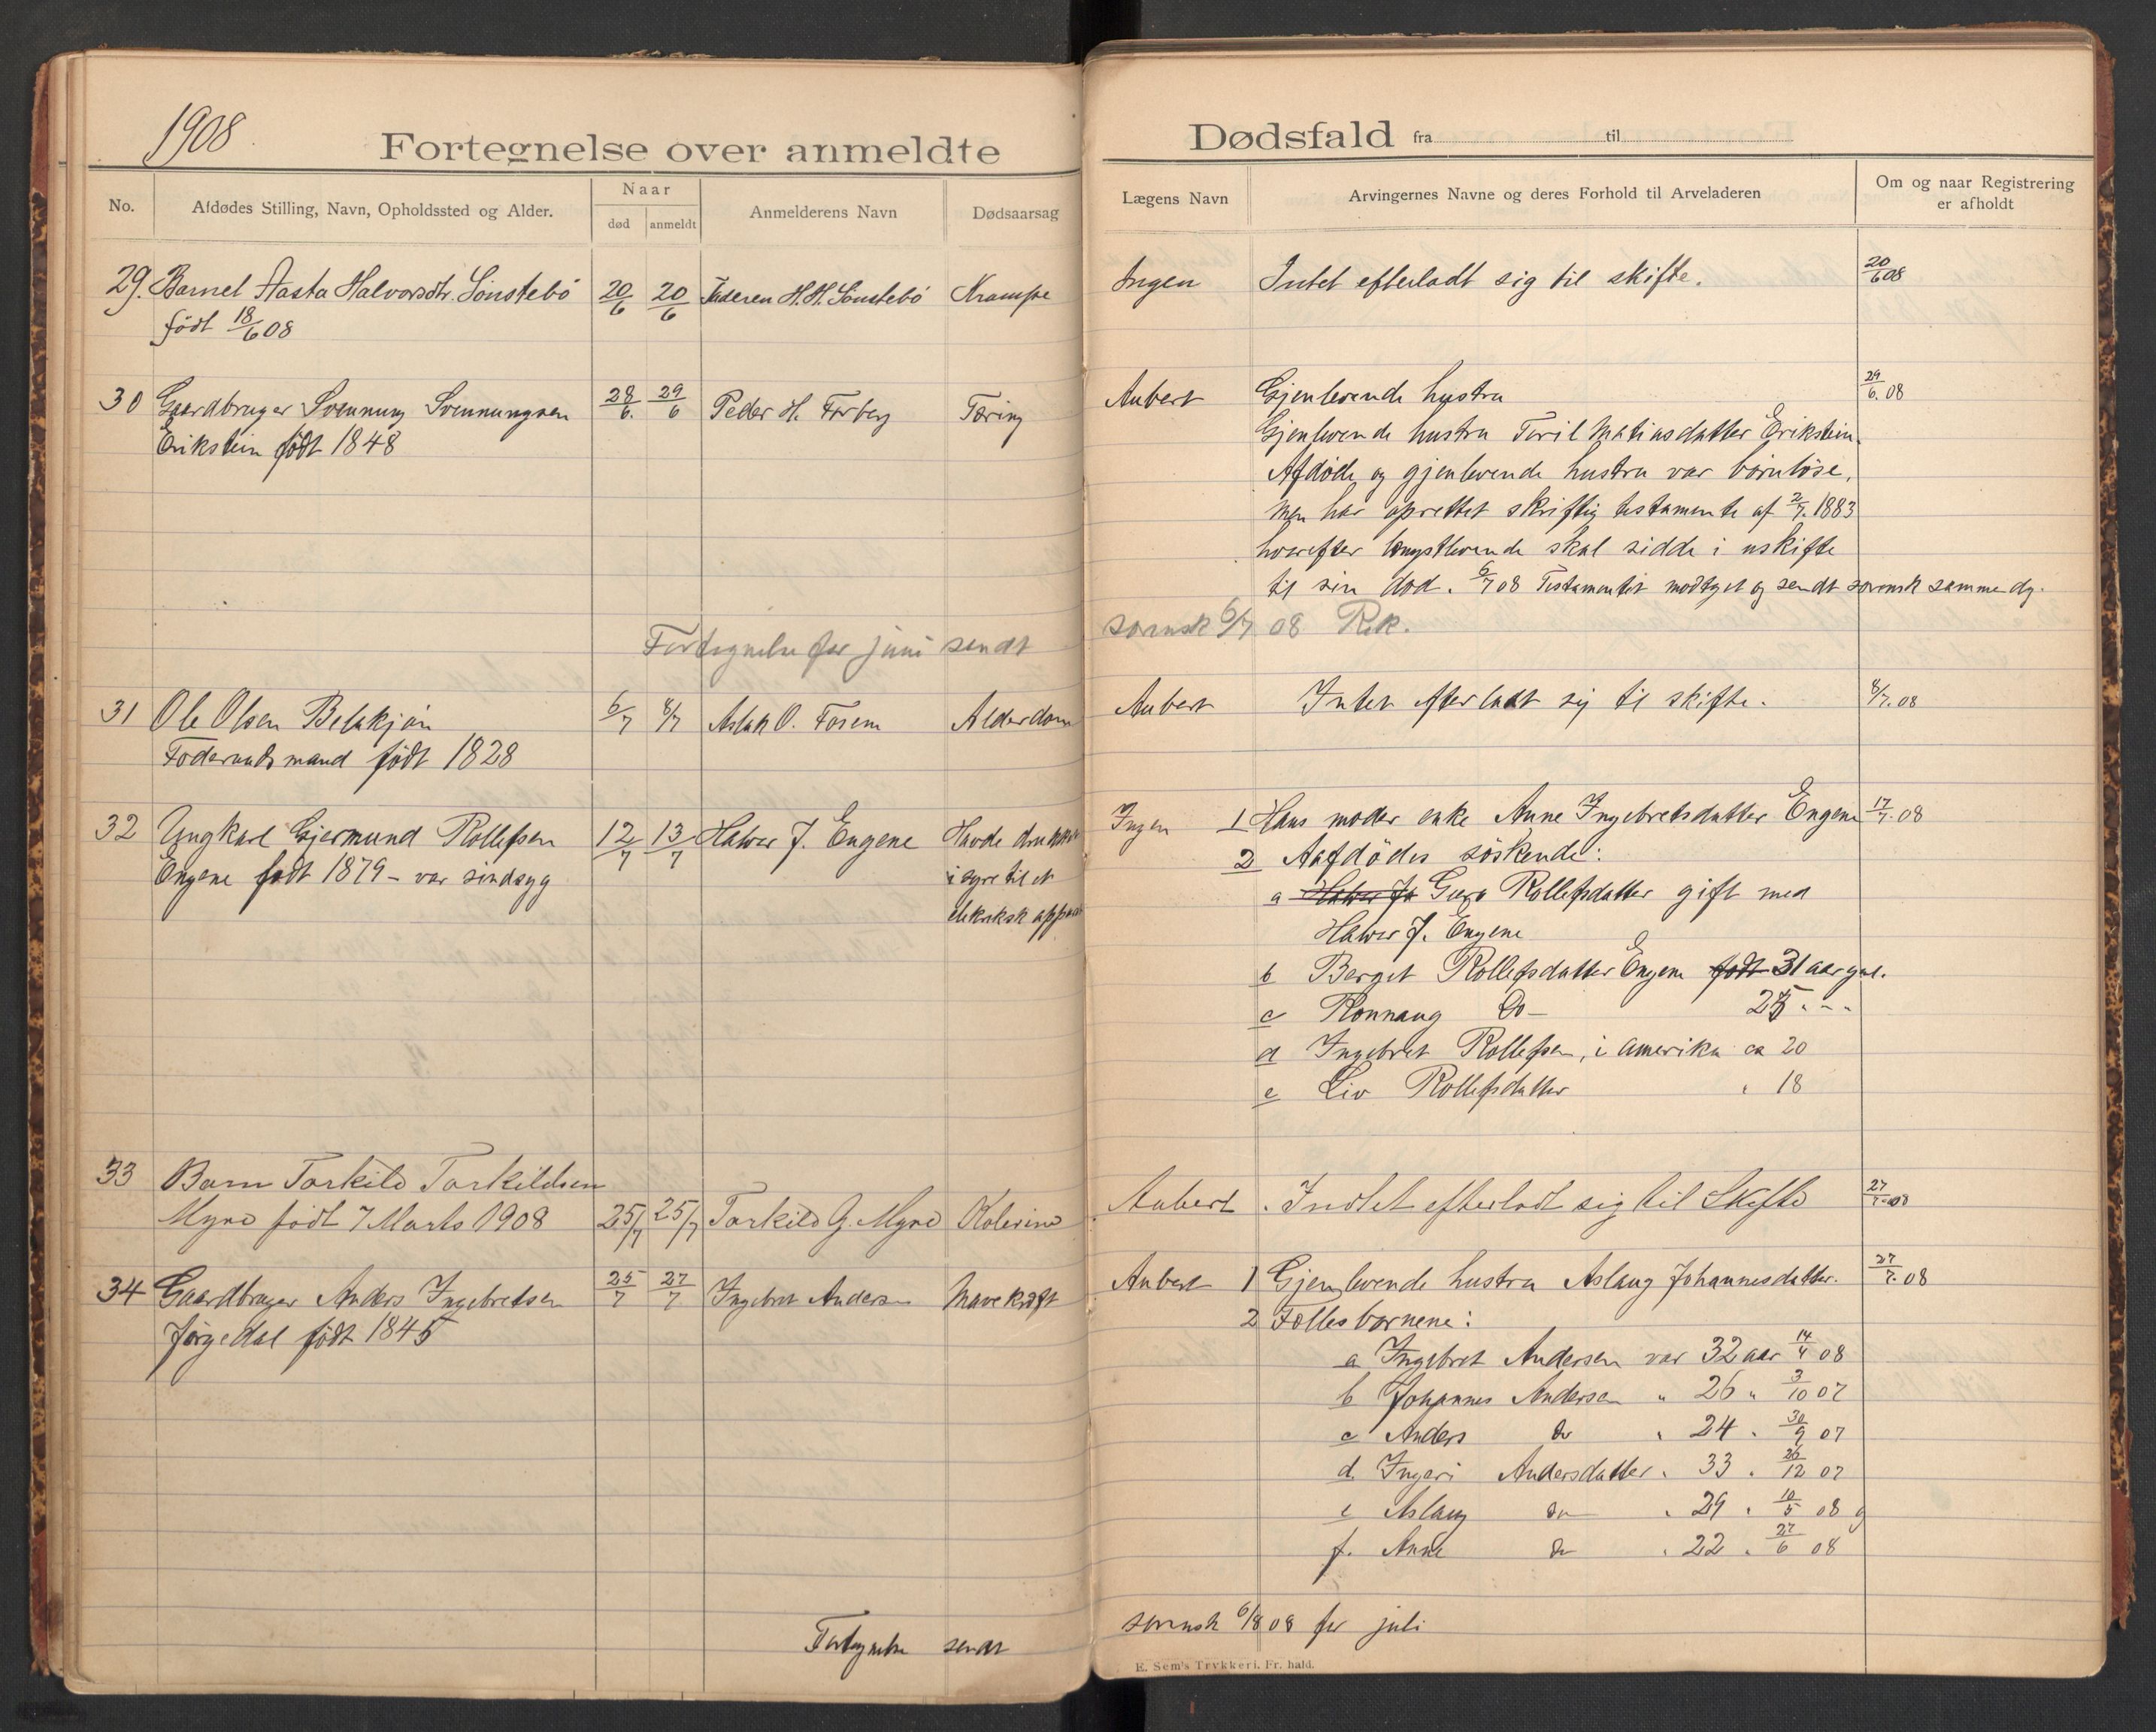 1908.
Fortegnelse over anmeldte
No.
Afdødes Stilling, Navn, Opholdssted og Alder.
Naar
død
anmeldt
Anmelderens Navn
Dødsaarsag
29. Barnet Aasta Halvorsdtr. Sönstebö 20/6 20/6 Faderen H. H. Sönstebö Krampe
født 18/6 08
30 Gaardbruger Svennung Svennungsen 28/6. 29/6 Peder H. Forberg Tæring
Erikstein født 1848
Fortegnelse for juni sendt
31 Ole Olsen Belakjøn 6/7 8/7 Aslak O. Fosem Alderdom
Foderaadsmand født 1828
32 Ungkarl Gjermund Rollefsen 12/7 13/7 Halvor J. Engene Havde drukket
Engene født 1879 – var sindsyg i syre til et
elektrisk apparat
33 Barn Torkild Torkildsen
Myro født 7 Marts 1908 25/7 25/7 Torkild G. Myro Kolerine
34 Gaardbruger Anders Ingebretsen 25/7 27/7 Ingebret Andersen Mavekræft
Jørgedal født 1845
Fortegnelse sendt
Dødsfald fra til
Lægens Navn
Arvingernes Navne og deres Forhold til Arveladeren
Om og naar Registrering
er afholdt
Ingen Intet efterladt sig til skifte. 20/6 08
Aubert Gjenlevende hustru 29/6. 08
Gjenlevende hustru Toril Matiasdatter Erikstein.
Afdøde og gjenlevende hustru var børnløse,
men har oprettet skriftlig testamente af 2/7. 1883
hvorefter længstlevende skal sidde i uskifte
til sin død. 6/7 08 Testamentet modtaget og sendt sorensk samme dg.
sorensk 6/7 08 R.k.
Aubert Intet efterladt sig til skifte. 8/7. 08
Ingen 1 Hans moder enke Anne Ingebretsdatter Engene 17/7. 08
2 Aafdödes söskende:
a Halvor Jo Guro Rollefsdatter gift med
Halvor J. Engene
b Berget Rollefsdatter Engene født 31 aar gml.
c Rønnaug Do – 25 . - -
d Ingebret Rollefsen, i Amerika ca 20
e Liv Rollefsdatter " 18
Aubert . Indtet efterladt sig til Skifte 27/7. 08
Aubert 1 Gjenlevende hustru Aslaug Johannesdatter. 27/7. 08
2 Fællesbørnene:
a Ingebret Andersen var 32 aar 14/4 08
b Johannes Andersen " 26 " 3/10 07
c Anders do " 24 " 30/9 07
d. Ingeri Andersdatter " 33 " 26/12 07
e Aslaug do " 29 " 10/5 08 g
f. Anne do " 22 " 27/6 08
sorensk 6/8 08 for juli
E. Sem's Trykkeri, Fr.hald.